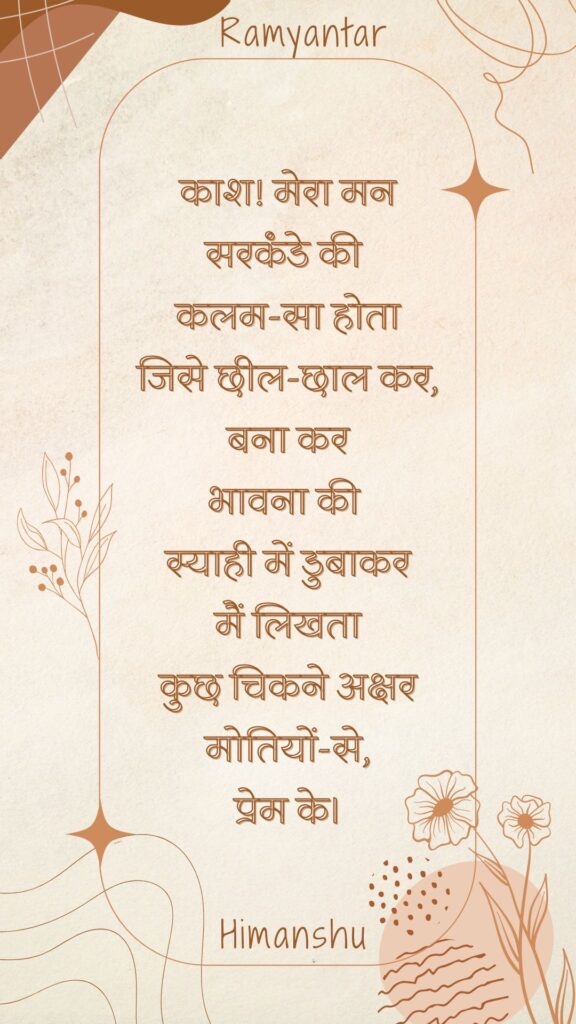 Ramyantar
काश! मेरा मन
सरकंडे की
कलम-सा होता
जिसे छील-छाल कर,
बना कर
भावना की
स्याही में डुबाकर
मैं लिखता
कुछ चिकने अक्षर
मोतियों-से,
प्रेम के।
Himanshu